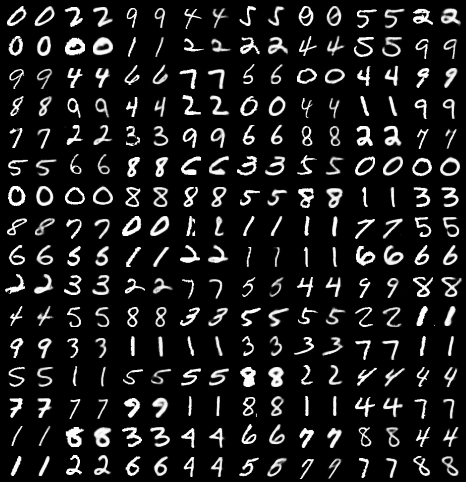 0 0 2 2 9 9 4 4 5 5 0 0 5 5 2 2
0 0 0 0 1 1 2 2 2 2 4 4 5 5 9 9
9 9 4 4 6 6 7 7 5 6 0 0 4 4 9 9
8 8 9 9 4 4 2 2 0 0 4 4 1 1 9 9
7 7 2 2 3 3 9 9 6 6 8 8 2 2 7 7
5 5 6 6 8 8 6 6 3 3 5 5 0 0 0 0
0 0 0 0 8 8 8 8 5 5 8 8 1 1 3 3
8 8 7 7 0 0 1 1 1 1 1 1 7 7 5 5
6 6 5 5 1 1 2 2 1 1 1 1 6 6 6 6
2 2 3 3 2 2 7 7 5 5 4 4 9 9 8 8
4 4 5 5 8 8 3 3 5 5 5 5 2 2 1 1
9 9 3 3 1 1 1 1 3 3 3 3 7 7 1 1
5 5 1 1 5 5 5 5 8 8 2 2 4 4 4 4
7 7 7 7 9 9 1 1 8 8 1 1 4 4 7 7
1 1 8 8 3 3 4 4 6 6 7 7 8 8 4 4
1 1 2 2 6 6 4 4 5 5 7 9 7 7 8 8